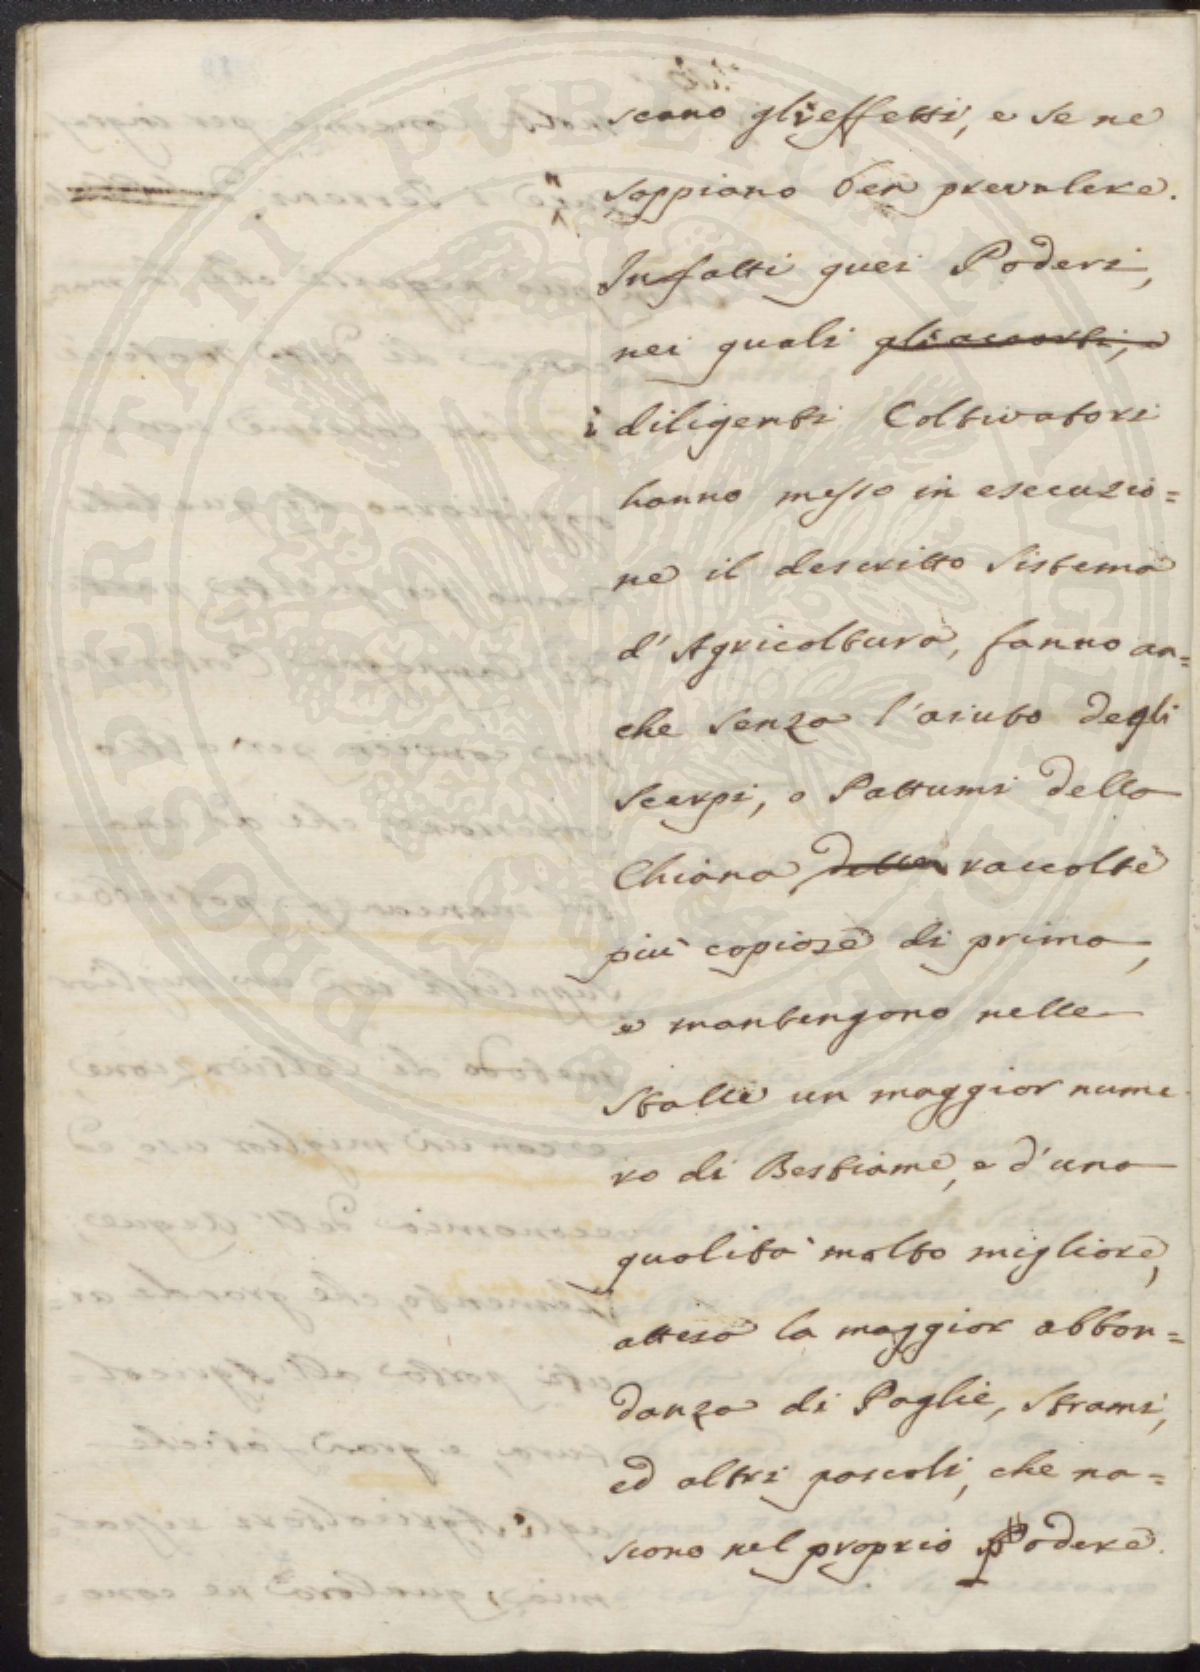 scano gli effetti, e se ne
sappiano ben prevalere.
Infatti quei Poderi,
nei quali gli accorti, e
i diligenti Coltivatori
hanno messo in esecuzio=
ne il descritto Sistema
d'Agricoltura, fanno an=
che senza l'aiuto degli
Scarpi, o Pattumi della
Chiana della raccolte
più copiose di prima,
e mantengono nelle
Stalle un maggior nume
ro di Bestiame, e d'una
qualità molto migliore,
attesa la maggior abbon=
danza di Paglie, Strami,
ed altri pascoli, che na=
scono nel proprio Podere.